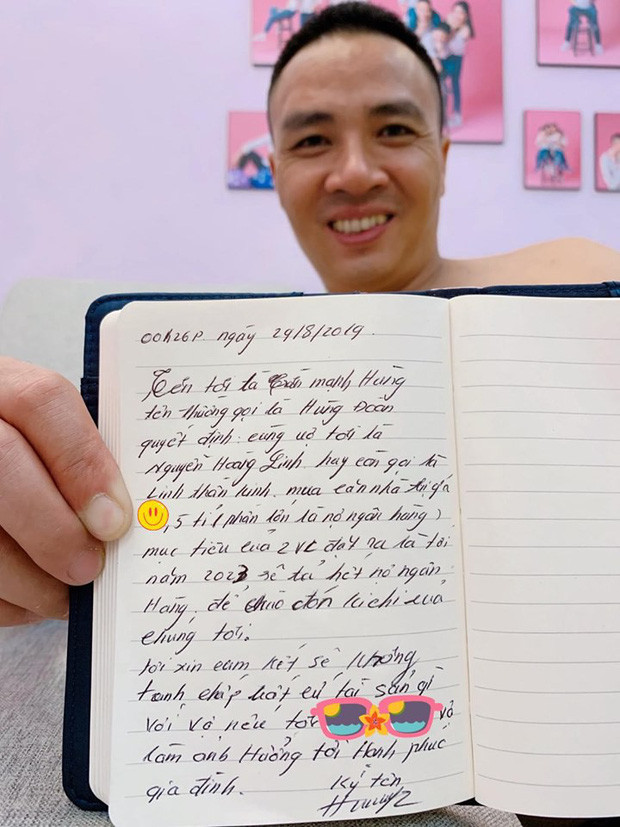 00h26p ngày 29/8/2019.
Tên tôi là Trần mạnh Hùng
tên thường gọi là Hùng Đoàn
quyết định: cùng vợ tôi là
Nguyễn Hoàng Linh hay còn gọi là
Linh thần kinh. mua căn nhà trị giá
,5 tỉ ( phần lớn là nợ ngân hàng )
mục tiêu của 2VC đặt ra là tới
năm 2023 sẽ trả hết nợ ngân
Hàng, để chào đón kichi của
chúng tôi.
tôi xin cam kết sẽ không
tranh chấp bất cứ tài sản gì
với vợ nếu tôi
làm ảnh Hưởng tới Hạnh phúc
gia đình.
Ký tên